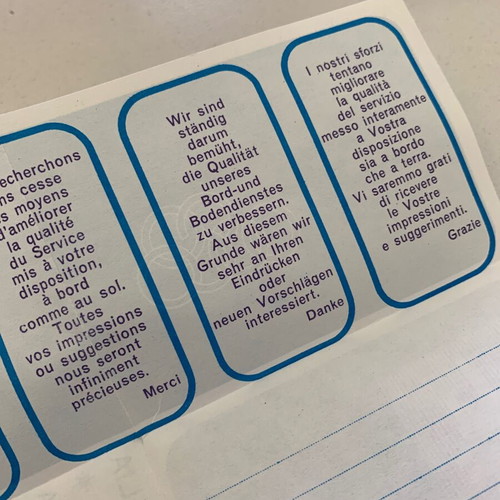 echerchons
ns cesse
s moyens
d'améliorer
la qualité
du Service
mis à votre
disposition,
à bord
comme au sol.
Toutes
vos impressions
ou suggestions
nous seront
infiniment
précieuses.
Merci
Wir sind
ständig
darum
bemüht,
die Qualität
unseres
Bord-und
Bodendienstes
zu verbessern.
Aus diesem
Grunde wären wir
sehr an Ihren
Eindrücken
oder
neuen Vorschlägen
interessiert.
Danke
I nostri sforzi
tentano
migliorare
la qualità
del servizio
messo interamente
a Vostra
disposizione
sia a bordo
che a terra.
Vi saremmo grati
di ricevere
le Vostre
impressioni
e suggerimenti.
Grazie